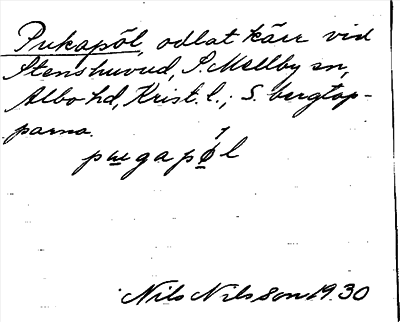 Pukapöl, odlat kärr vid
Stenshuvud, S. Mellby sn,
Albo hd, Krist. l.; S. bergtop-
parna.
pugapøl
Nils Nilsson 1930